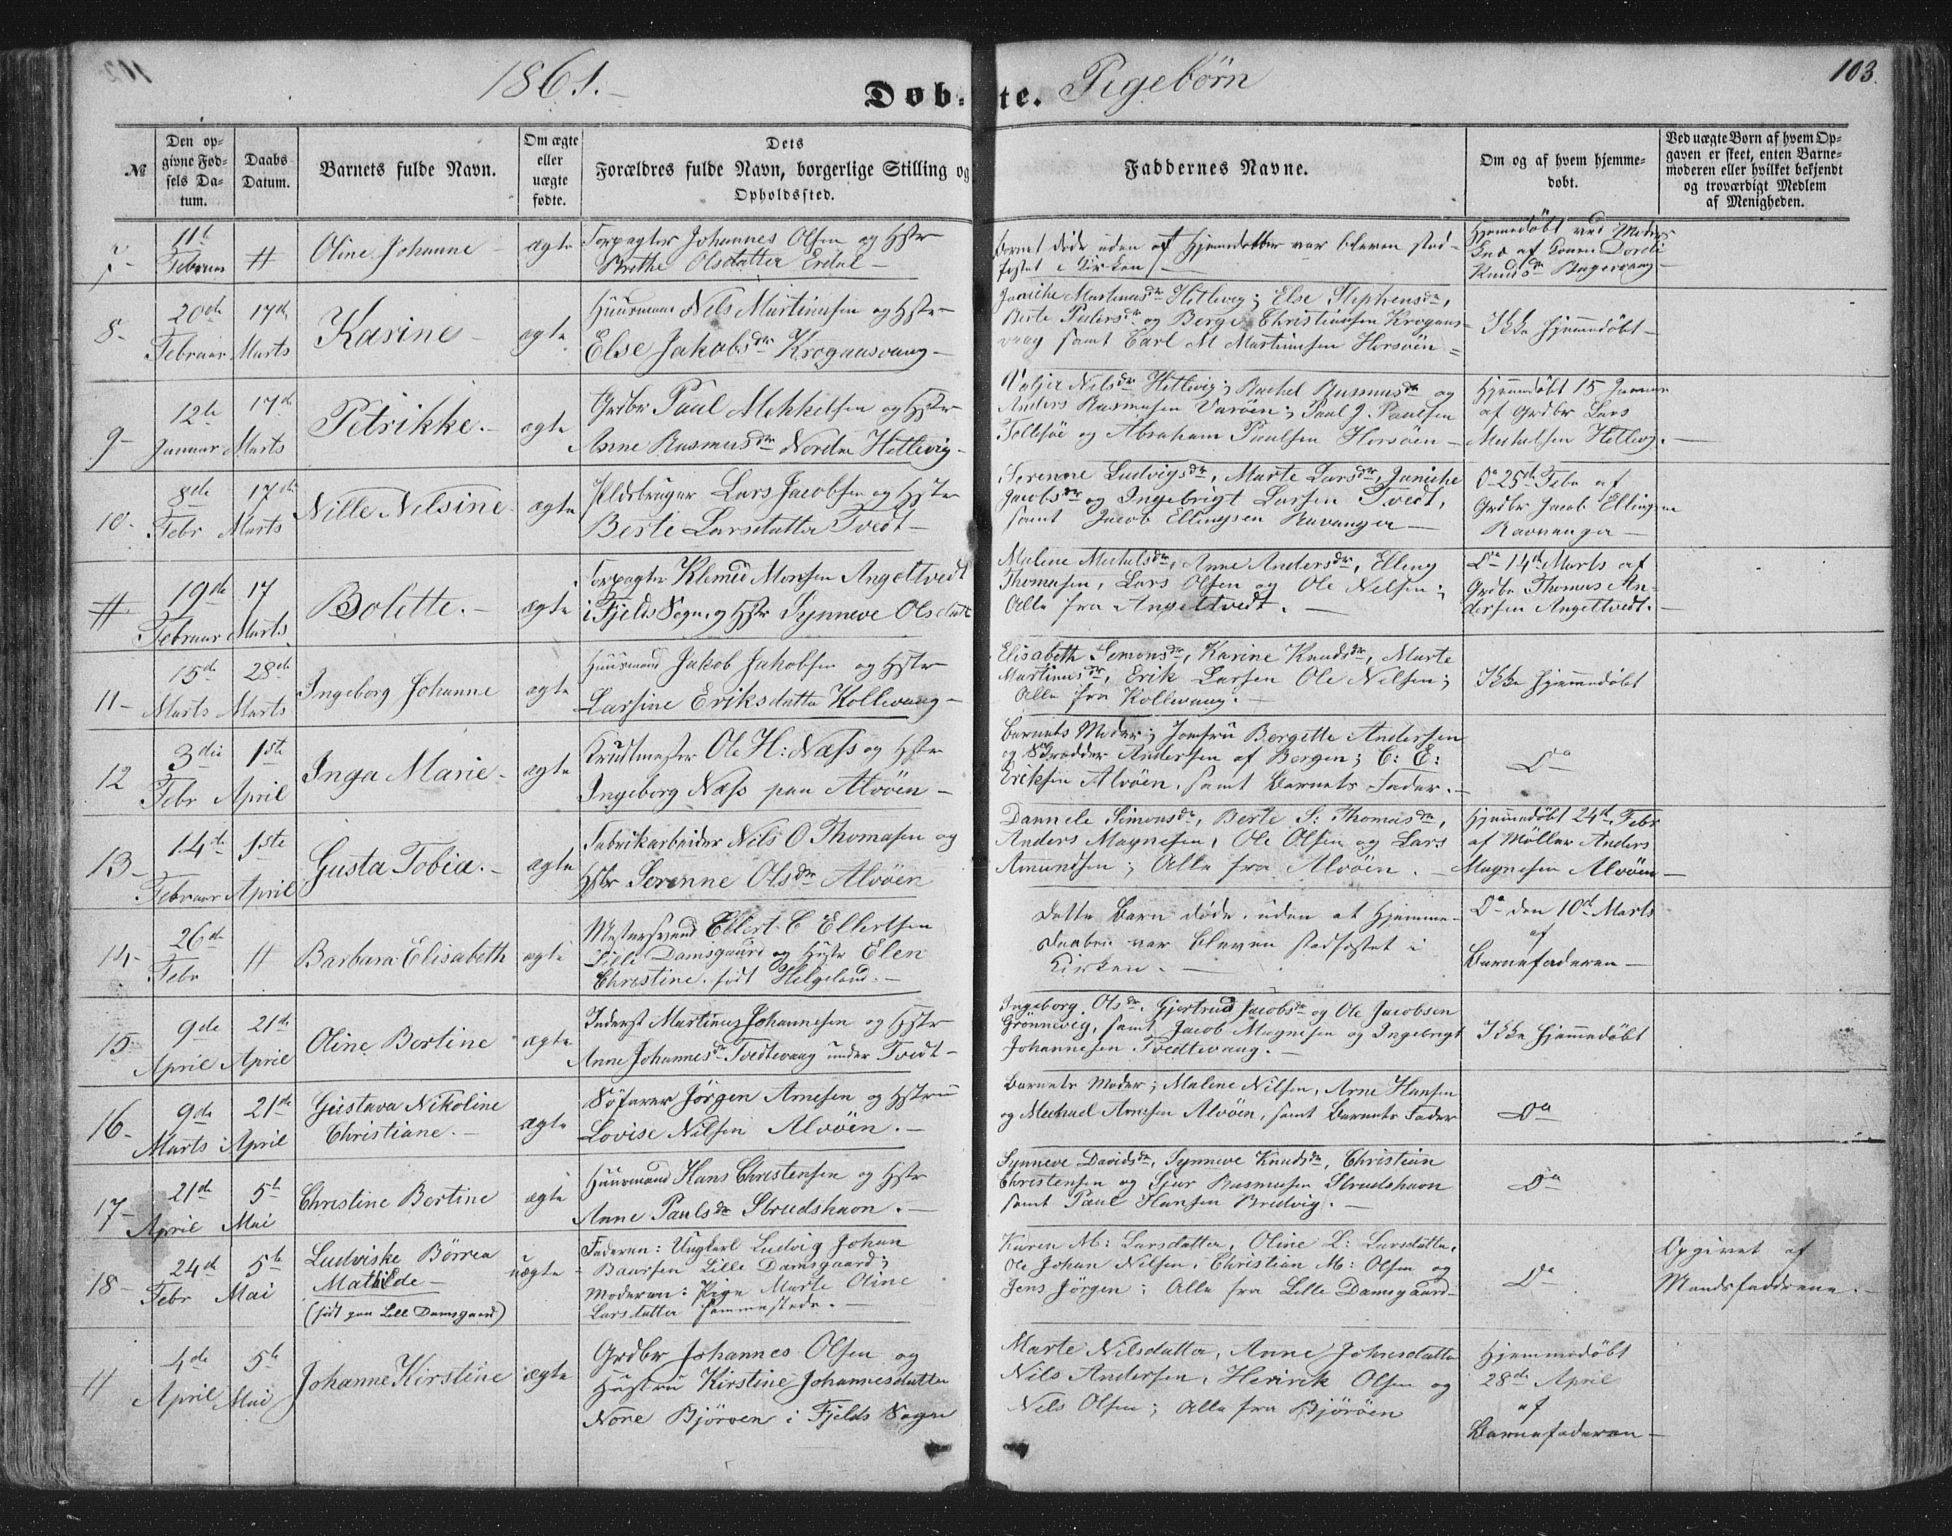 1861.
Døbte. Pigebørn
103.
№
Den opgivne Fødsels Datum.
Daabs Datum.
Barnets fulde Navn.
Om ægte eller uægte fødte.
Dets Forældres fulde Navn, borgerlige Stilling og Opholdssted.
Faddernes Navne.
Om og af hvem hjemmedøbt.
Ved uægte Børn af hvem Opgaven er skeet, enten Barnemoderen eller hvilket bekjendt og troværdigt Medlem af Menigheden.
7-
11te Februar
#
Oline Johanne
ægte
Forpagter Johannes Olsen og Hstr
Brithe Olsdatter Erdal
Barnet døde uden at Hjemmedaaben var bleven stad-
fæstet i Kirken
Hjemmedøbt ved Moders
Knud
8-
20de Februar
17de Marts
Karine
ægte
Huusmand Nils Martinusen og Hstr
Else Jakobsdr Krogaasvaag
Martinusdr Hetlevig; Else Stephensdr,
Berte Pedersdr og Berge Christiansen Krogaas-
vaag samt Carl M Martinusen Horsøen
Ikke hjemmedøbt
9-
12te Januar
17de Marts
Petrikke.
ægte
Grdbr Paul Mikkelsen og Hstr
Anne Rasmusdr Nordre Hetlevig
Nilsdr Hetlevig; Rachel Rasmusdr og
Anders Rasmusen Varøen; Paul J. Paulsen
Tellesøe og Abraham Paulsen Horsøen
Hjemmedøbt 15 Januar
af Grdbr Lars
Michelsen Hetlevig.
10-
8de Febr
17de Marts
Nille Nilsine
ægte
Pladsbruger Lars Jacobsen og Hstr
Berte Larsdatter Tvedt
Serenne Ludvigsdr, Marte Larsdr, Janiche
Jacobsdr og Ingebrigt Larsen Tvedt,
samt Jacob Ellingsen Ravanger
Do 25de Febr af
Grdbr Jacob Ellingsen
Ravnanger
#
19de Februar
17 Marts
Bolette.
ægte
Forpagter Klemed Monsen Angeltvedt
i Fjelds Sogn og Hstr Synneve Olsdatt
Malene Michelsdr, Anne Andersdr, Elling
Thomasen, Lars Olsen og Ole Nilsen;
Alle fra Angeltvedt.
Do 14de Marts af
Grdbr Thomas An-
dersen Angeltvedt.
11-
15de Marts
28de Marts
Ingeborg Johanne
ægte
Huusmand Jakob Jakobsen og Hstr
Larsine Eriksdatter Kollevaag
Elisabeth Simonsdr, Karine Knudsdr, Marte
Martinusdr, Erik Larsen Ole Nilsen;
Alle fra Kollevaag.
Ikke hjemmedøbt
12
3die Febr
1ste April
Inga Marie
ægte
Krudtmester Ole H: Næss og Hstr
Ingeborg Næss paa Alvøen
Barnets Moder; Jomfru Bergitte Andersen
og Skrædder Andersen af Bergen; C: E:
Eriksen Alvøen, samt Barnets Fader.
Do
13-
14de Februar
1ste April
Gusta Tobia.
ægte
Fabrikarbeider Nils O Thomasen og
Hstr Serenne Olsdr Alvøen
Dannele Simonsdr, Berte S: Thomasdr,
Anders Magnesen, Ole Olsen og Lars
Amundsen; Alle fra Alvøen.
Hjemmedøbt 24de Febr
af Møller Anders
Magnesen Alvøen
14-
26de Febr
#
Barbara Elisabeth
ægte
Mestersvend Ellert C Ellertsen
Lille Damsgaard og Hstr Elen
Christine født Helgeland.
Dette Barn døde uden at Hjemme-
daaben var bleven stadfæstet i
Kirken.
Do den 10de Marts
af
Barnefaderen
15-
9de April
21de April
Oline Bertine
ægte
Inderst Martinus Johannesen og Hstr
Anne Johannesdr Tvedtevaag under Tvedt
Ingeborg Olsdr. Gjertrud Jacobsdr og Ole Jacobsen
Grønnevig, samt Jacob Magnesen og Ingebrigt
Johannesen Tvedtevaag.
Ikke hjemmedøbt
16-
9de Marts
21de April
Gustava Nikoline
Christiane.
ægte
Søfarer Jørgen Arnesen og Hstru
Lovise Nilsen Alvøen.
Barnets Moder; Malene Nilsen, Arne Hansen
og Michael Arnesen Alvøen, samt Barnets Fader
Do
17-
21de April
5te Mai
Christine Bertine
ægte
Huusmand Hans Christensen og Hstr
Anne Paulsdr Strudshavn.
Synneve Davidsdr, Synneve Knudsdr, Christian
Christensen og Sjur Rasmusen Strudshavn
samt Paul Hansen Bredvig.
Do
18-
24de Febr
5te Mai
Ludviske Børrea
Mathilde
(født paa Lille Damsgaard)
uægte
Faderen: Ungkarl Ludvig Johan
Baarsen Lille Damsgaard;
Moderen: Pige Marte Oline
Larsdatter sammesteds.
Karen M: Larsdatter, Oline L: Larsdatter,
Ole Johan Nilsen, Christian M: Olsen og
Jens Jørgen; Alle fra Lille Damsgaard
Do
Opgivet af
Mandsfadderne.
#
4de April
5te Mai
Johanne Kirstine
ægte
Grdbr Johannes Olsen og
Hustru Kirstine Johannesdatter
Bjørøen i Fjelds Sogn
Marte Nilsdatter, Anne Johnsdatter
Nils Andersen, Henrik Olsen og
Nels Olsen; Alle fra Bjørøen
Hjemmedøbt
28de April
af
Barnefaderen